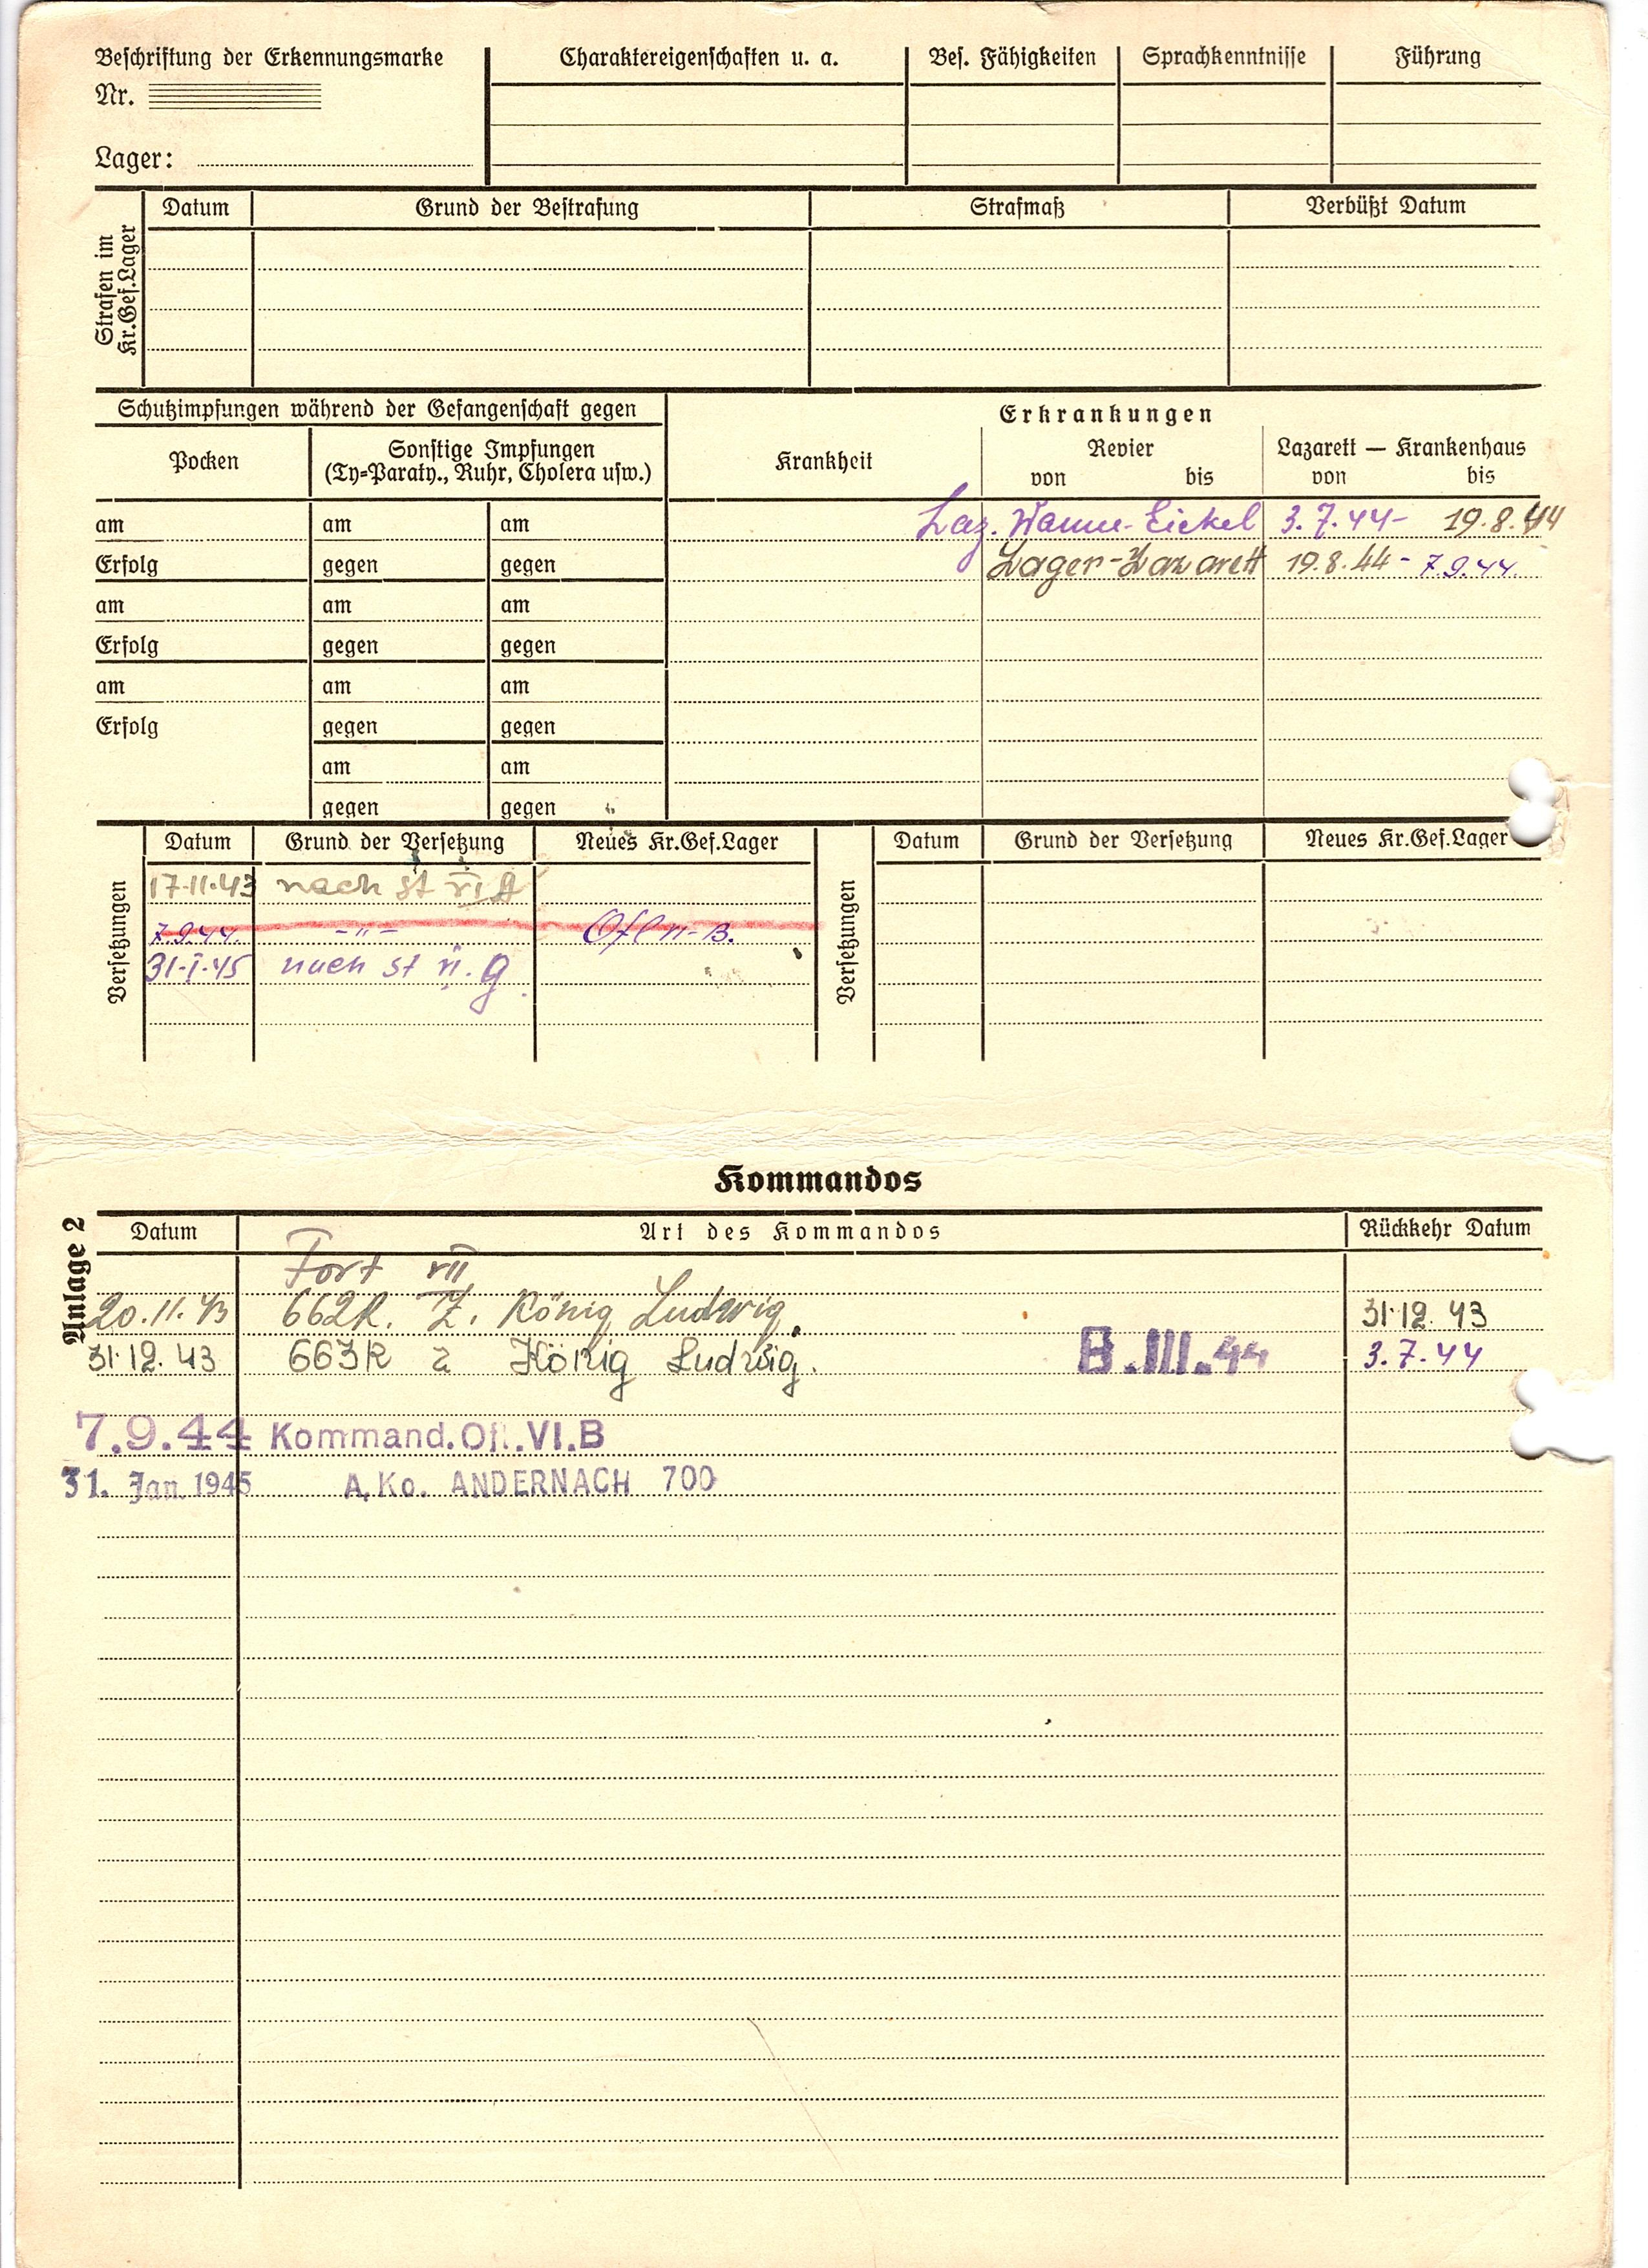 Beschriftung der Erkennungsmarke Charaktereigenschaften u. a. Bes. Fähigkeiten Sprachkenntnisse Führung
Nr.
Lager:
Strafen im Kr.Gef.Lager
Datum Grund der Bestrafung Strafmaß Verbüßt Datum
Schutzimpfungen während der Gefangenschaft gegen Erkrankungen
Pocken Sonstige Impfungen Krankheit Revier Lazarett — Krankenhaus
(Ty=Paraty., Ruhr, Cholera usw.) von bis von bis
am am am Laz. Wanne-Eickel 3.7.44- 19.8.44
Erfolg gegen gegen Lager-Lazarett 19.8.44 - 7.9.44.
am am am
Erfolg gegen gegen
am am am
Erfolg gegen gegen
am am
gegen gegen
Versetzungen Datum Grund der Versetzung Neues Kr.Gef.Lager Versetzungen Datum Grund der Versetzung Neues Kr.Gef.Lager
17.11.43 nach st VI g
7.9.44. -"-
31.I.45 nach st VI. g.
Kommandos
Anlage 2
Datum Art des Kommandos Rückkehr Datum
Fort VII
20.11.43 662R. Z. König Ludwig. 31.12.43
31.12.43 663R Z König Ludwig. B.III.44 3.7.44
7.9.44 Kommand.Ofl.VI.B
31. Jan. 1945 A.Ko. ANDERNACH 700